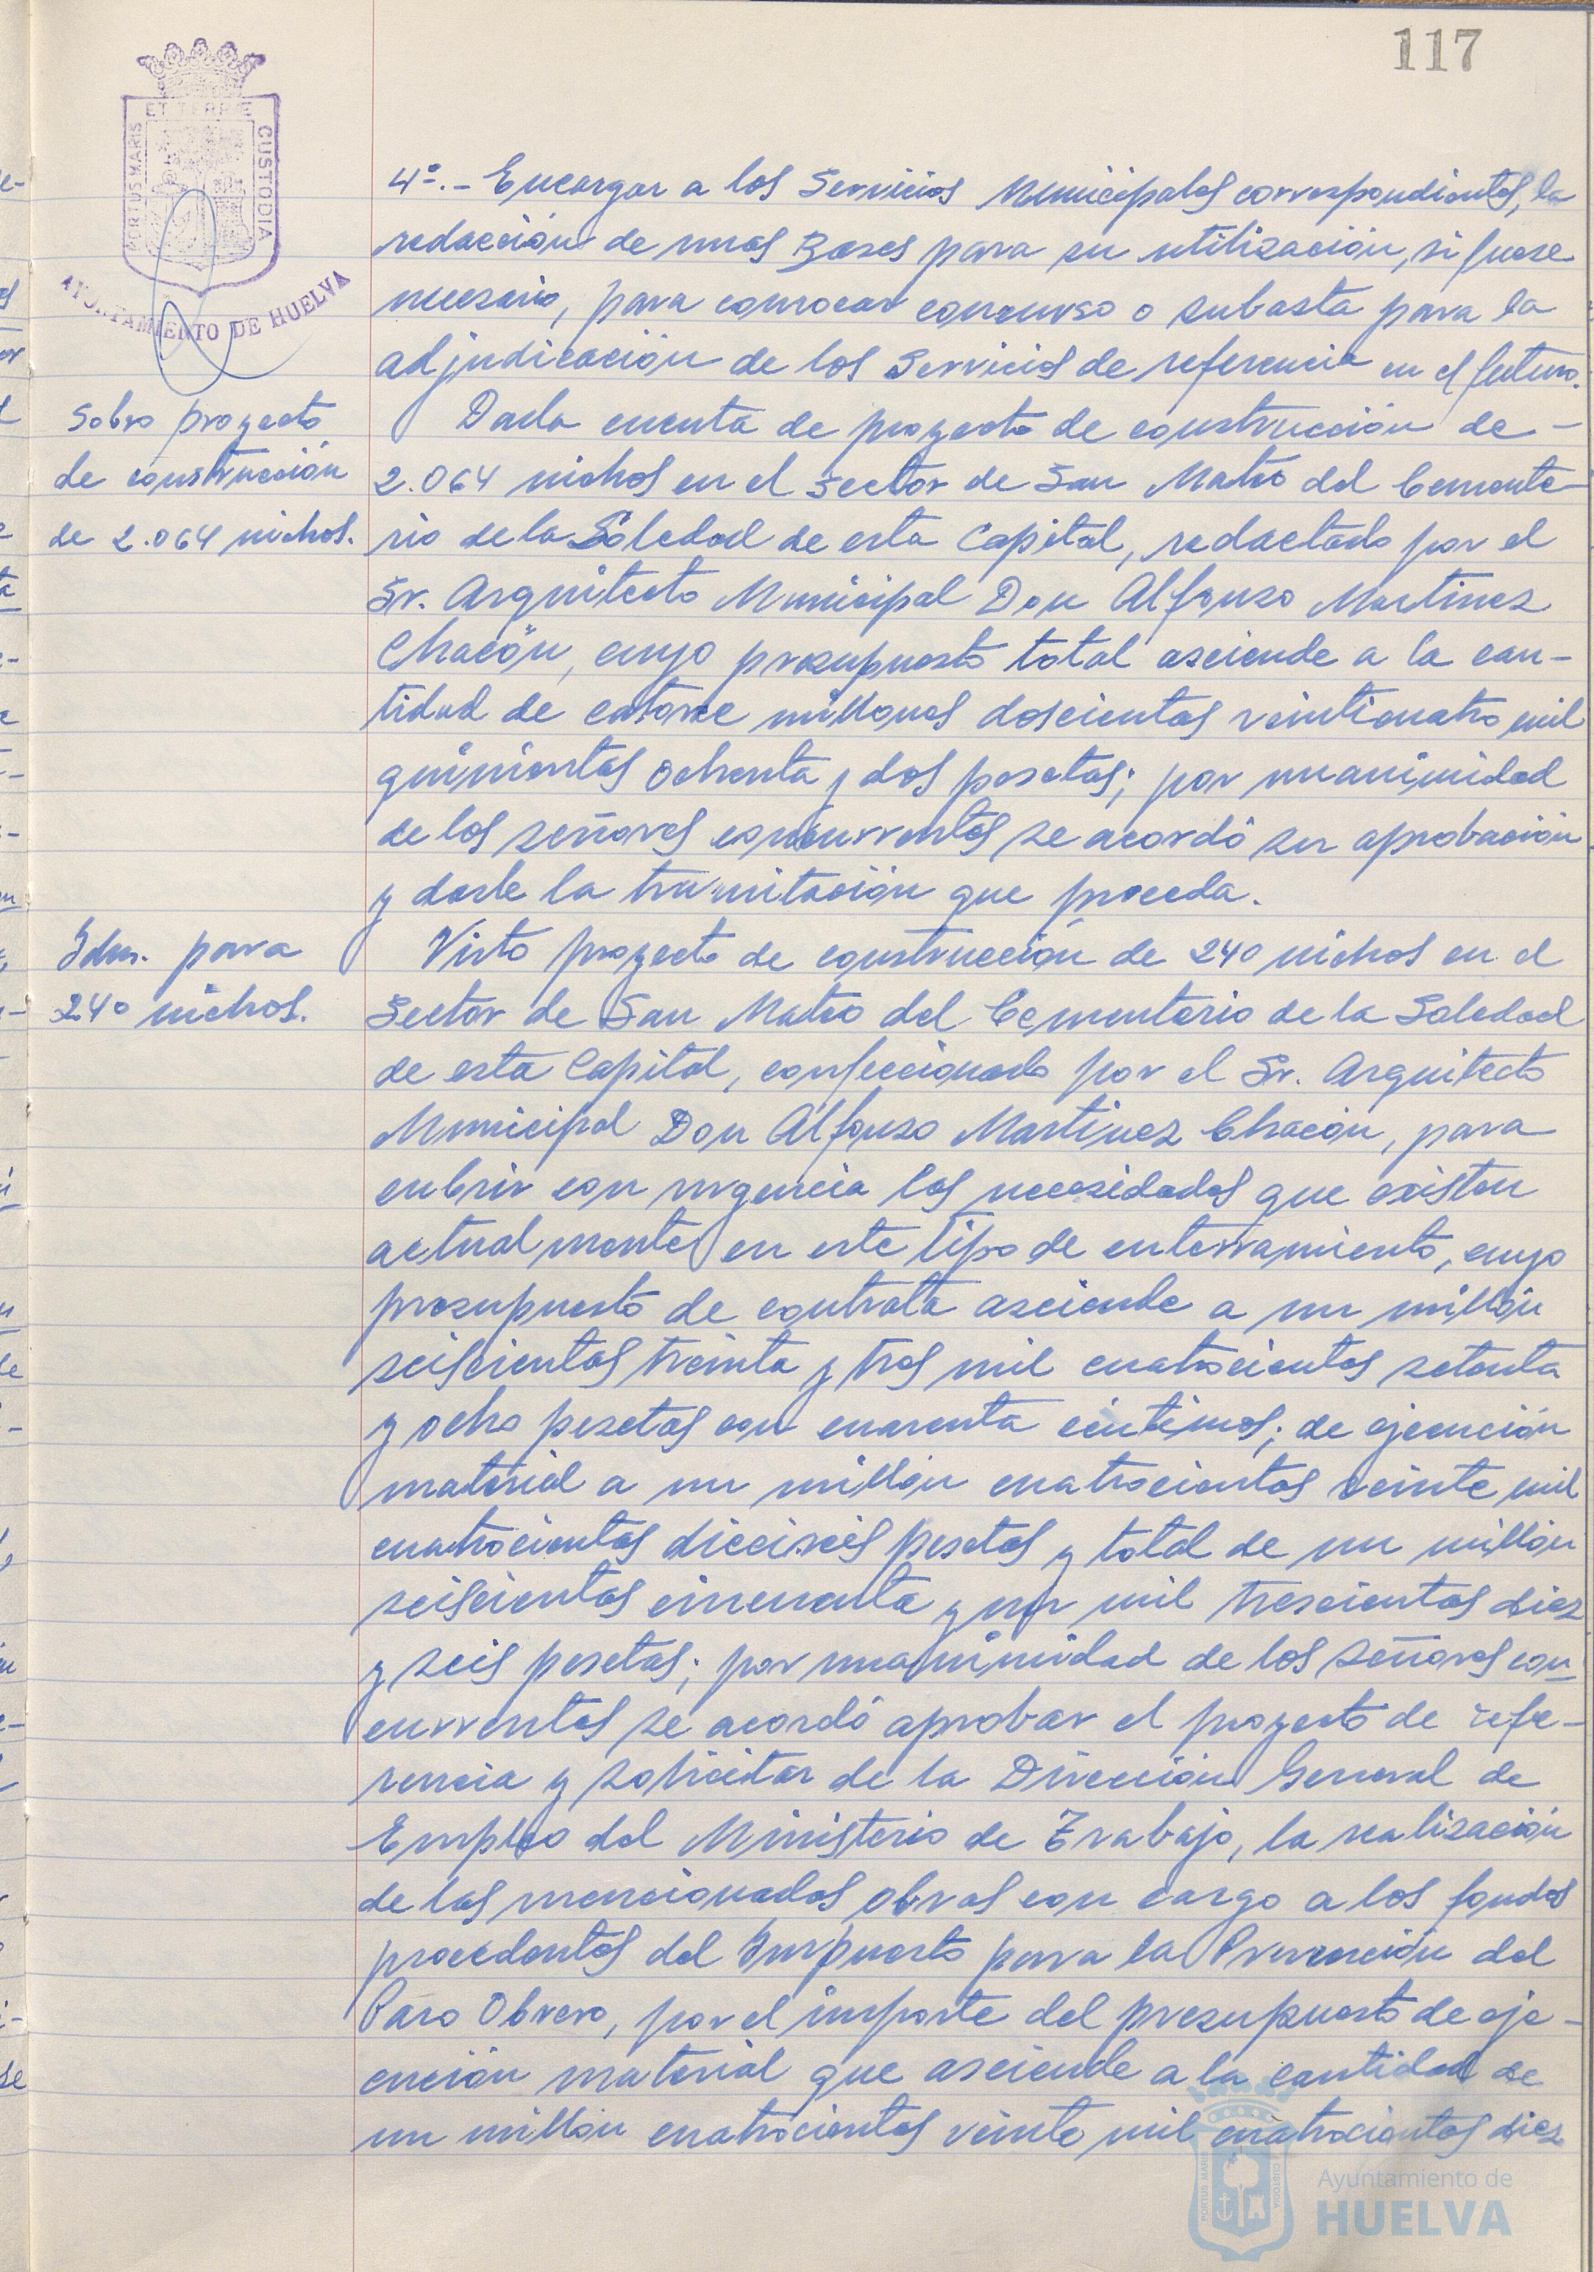 117
ET TERRÆ
PORTUS MARIS
CUSTODIA
AYUNTAMIENTO DE HUELVA
4º.- Encargar a los Servicios Municipales correspondientes, la
redacción de unas Bases para su utilización, si fuese
necesario, para convocar concurso o subasta para la
adjudicación de los Servicios de referencia en el futuro.
Sobre proyecto
de construcción
de 2.064 nichos.
Dada cuenta de proyecto de construcción de -
2.064 nichos en el Sector de San Mateo del Cemente-
rio de la Soledad de esta Capital, redactado por el
Sr. Arquitecto Municipal Don Alfonso Martinez
Chacón, cuyo presupuesto total asciende a la can-
tidad de catorce millones doscientas veinticuatro mil
quinientas ochenta y dos pesetas; por unanimidad
de los señores concurrentes se acordó su aprobación
y darle la tramitación que proceda.
Idm. para
240 nichos.
Visto proyecto de construcción de 240 nichos en el
Sector de San Mateo del Cementerio de la Soledad
de esta Capital, confeccionado por el Sr. Arquitecto
Municipal Don Alfonso Martinez Chacón, para
cubrir con urgencia las necesidades que existen
actualmente en este tipo de enterramiento, cuyo
presupuesto de contrata asciende a un millón
seiscientas treinta y tres mil cuatrocientas setenta
y ocho pesetas con cuarenta céntimos; de ejecución
material a un millón cuatrocientas veinte mil
cuatrocientas dieciseis pesetas y total de un millón
seiscientas cincuenta y un mil trescientas diez
y seis pesetas; por unanimidad de los señores con
currentes se acordó aprobar el proyecto de refe-
rencia y solicitar de la Dirección General de
Empleo del Ministerio de Trabajo, la realización
de las mencionadas obras con cargo a los fondos
procedentes del Impuesto para la Prevención del
Paro Obrero, por el importe del presupuesto de eje-
cución material que asciende a la cantidad de
un millón cuatrocientas veinte mil cuatrocientas diez
Ayuntamiento de
HUELVA